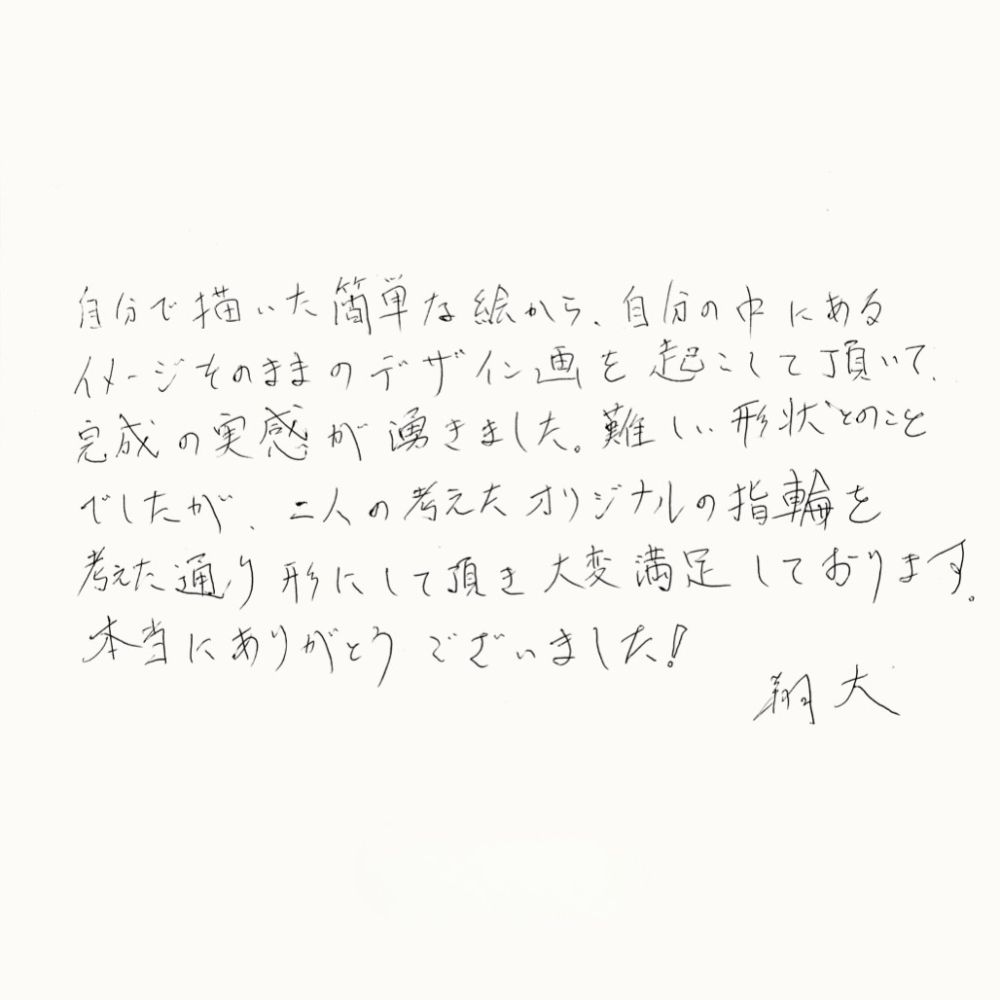 自分で描いた簡単な絵から、自分の中にある
イメージそのままのデザイン画を起こして頂いて、
完成の実感が湧きました。難しい形状とのこと
でしたが、二人の考えたオリジナルの指輪を
考えた通り形にして頂き大変満足しております。
本当にありがとうございました!
翔大